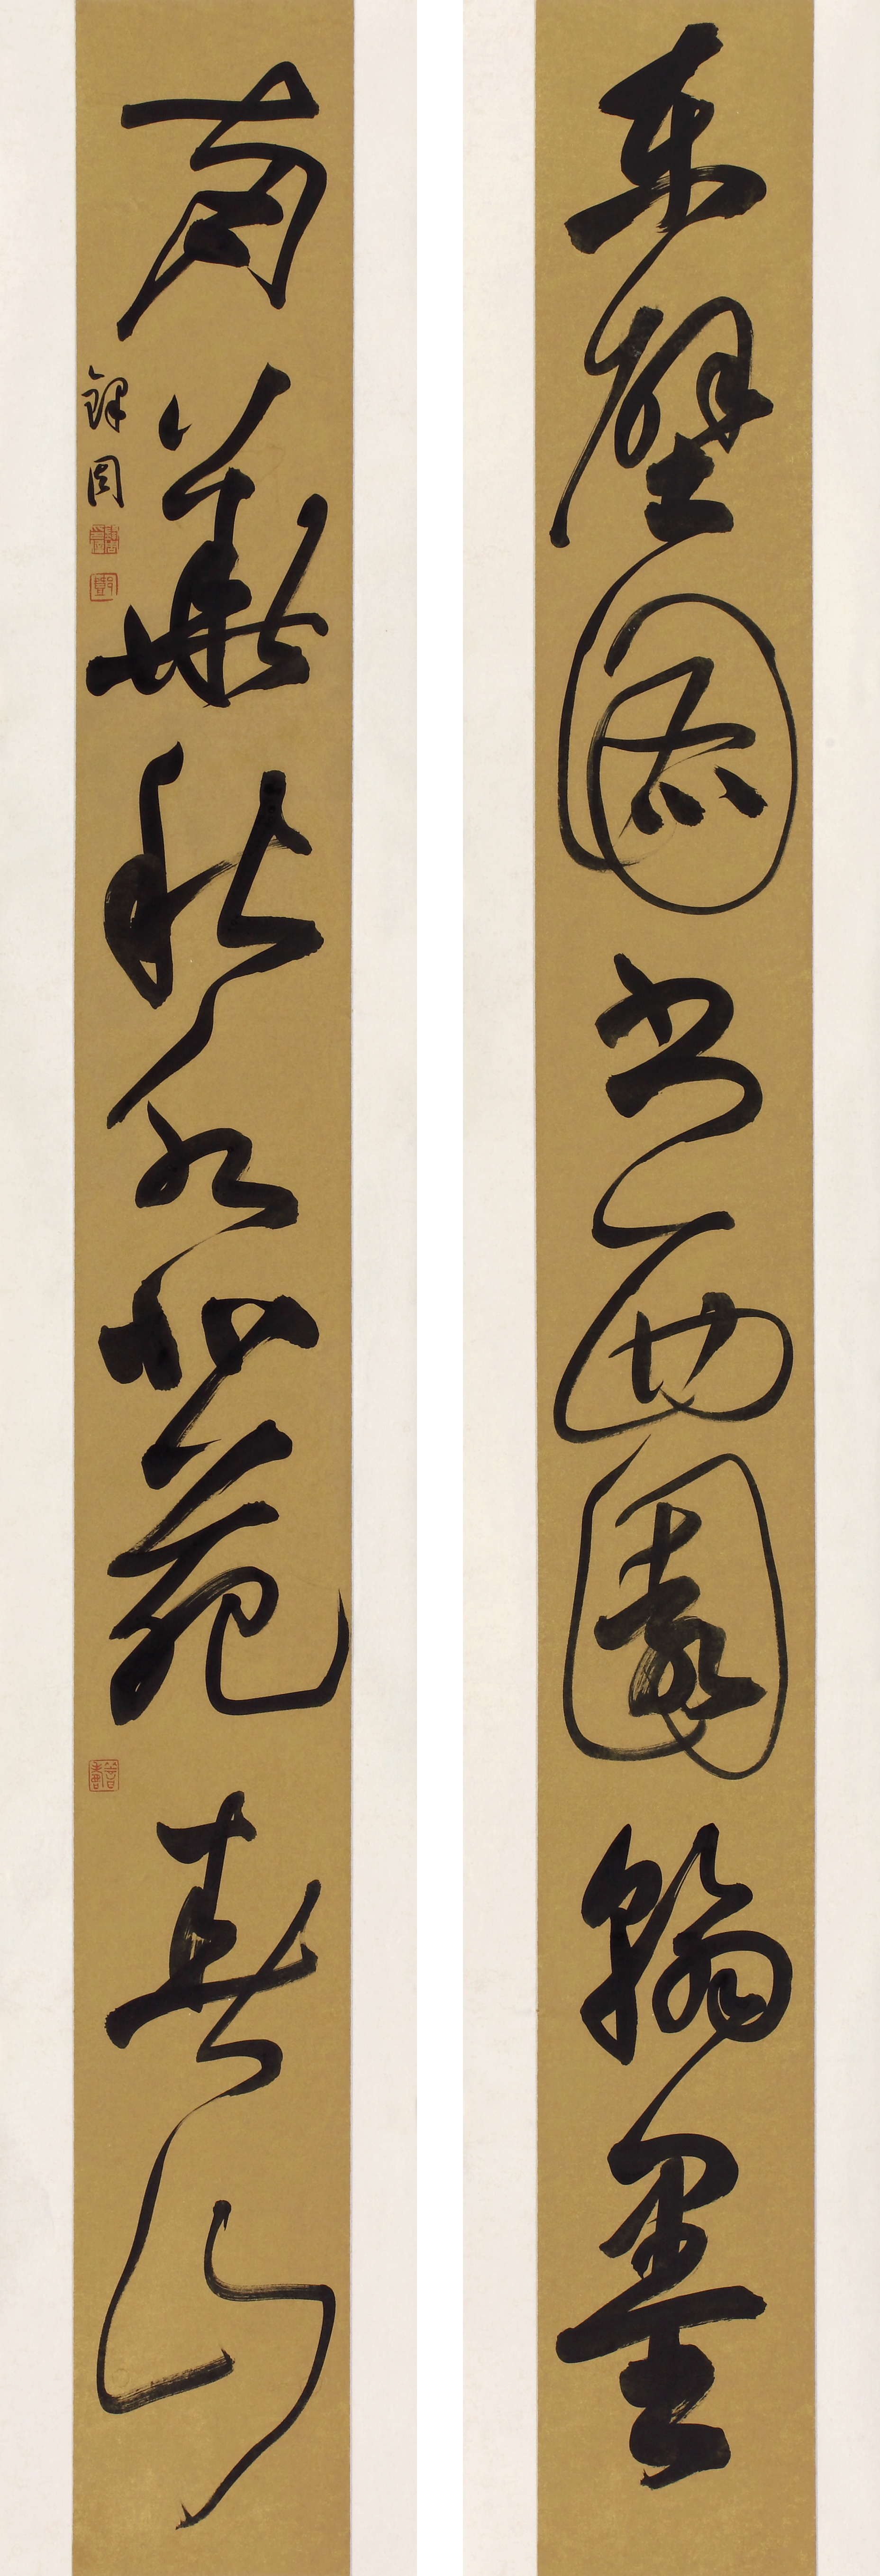 東壁圖書西園翰墨
南華秋水北苑春山
鐸周